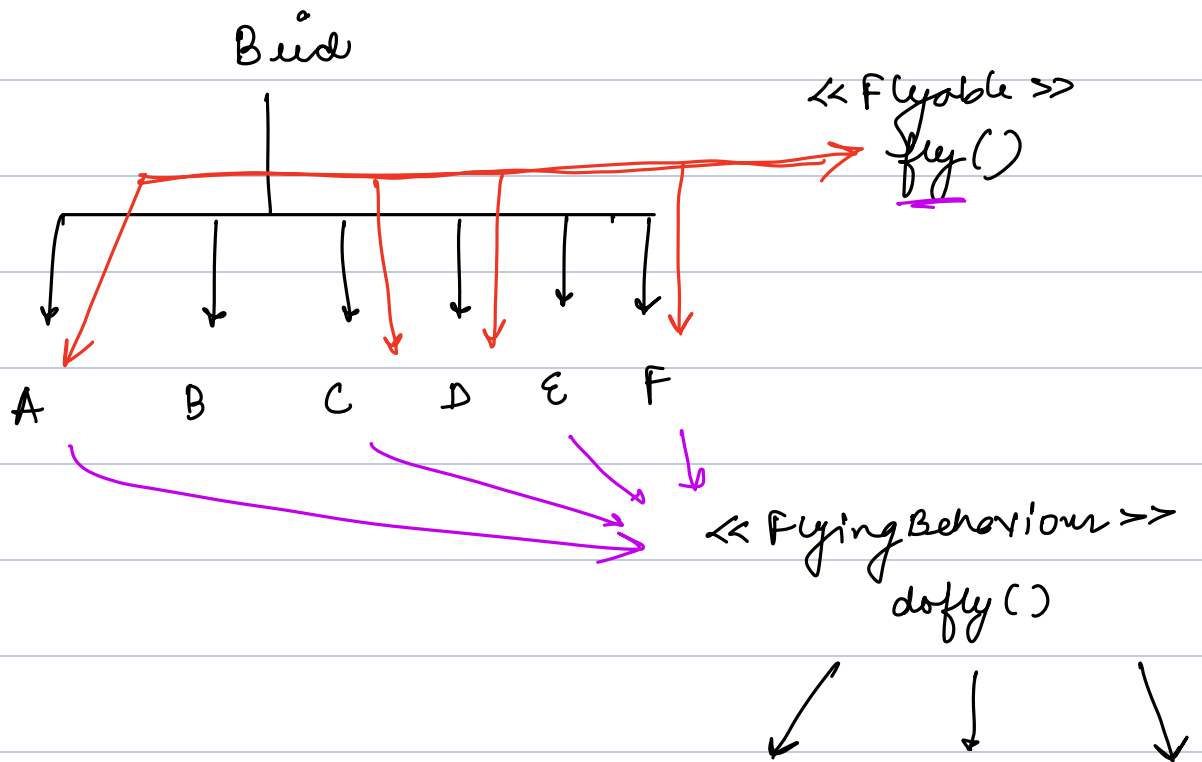 Bird
<< Flyable >>
fly()
A B C D E F
<< FlyingBehaviour >>
dofly()